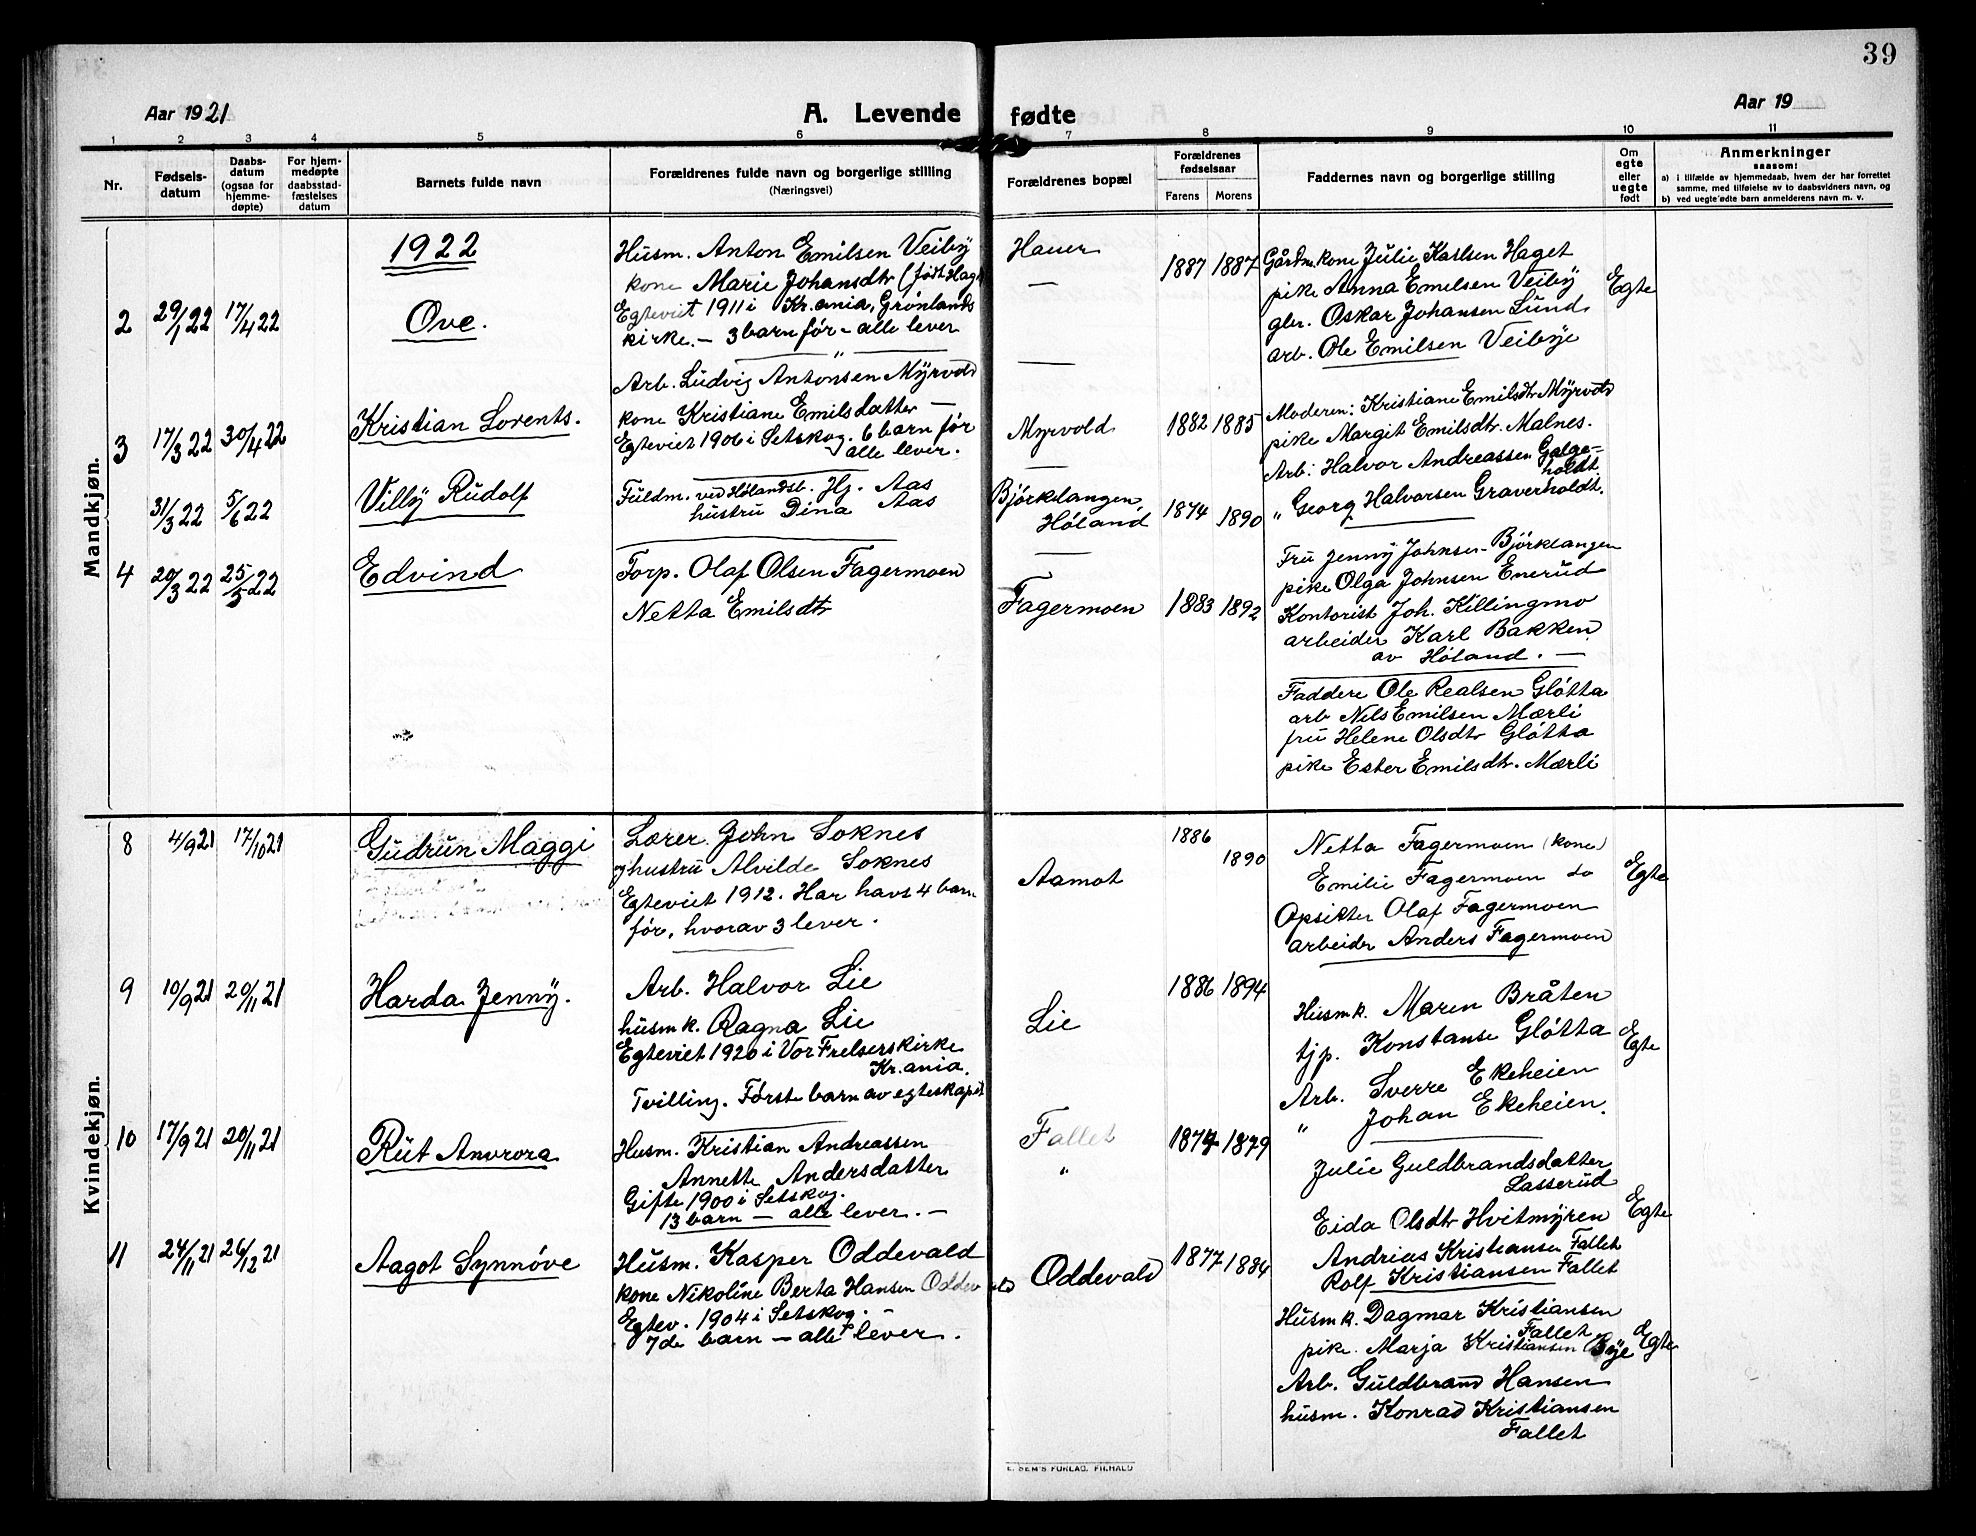 39
Aar 1921
A. Levende fødte
Aar 19
1 2 3 4 5 6 7 8 9 10 11
Nr.
Fødsels-
datum
Daabs-
datum
(ogsaa for
hjemme-
døpte)
For hjem-
medøpte
daabsstad-
fæstelses
datum
Barnets fulde navn
Forældrenes fulde navn og borgerlige stilling
(Næringsvei)
Forældrenes bopæl
Forældrenes
fødselsaar
Farens Morens
Faddernes navn og borgerlige stilling
Om
egte
eller
uegte
født
Anmerkninger
saasom:
a) i tilfælde av hjemmedaab, hvem der har forrettet
samme, med tilføielse av to daabsvidners navn, og
b) ved uegte fødte barn anmelderens navn m. v.
Mandkjøn.
1922
2 29/1 22 17/4 22
Ove.
Husm. Anton Emilsen Veiby
kone Marie Johansdtr (født Hag
Egteviet 1911 i Kr.ania, Grønlands
kirke. — 3 barn før — alle lever
Hauer
—
1887 1887
Gårdm.kone Julie Karlsen Haget
pike Anna Emelsen Veiby
gbr. Oskar Johansen Lund
arb. Ole Emilsen Veibye
Egte
3 17/3 22 30/4 22
Kristian Lorents.
Arb. Ludvig Antonsen Myrvold
kone Kristiane Emilsdatter —
Egteviet 1906 i Setskog. 6 barn før
alle lever.
—
Myrvold
1882 1885
Moderen: Kristiane Emilsdtr Myrvold
pike Margit Emilsdtr. Malnes.
Arb: Halvor Andreassen Galge-
holdt.
" Georg Halvorsen Graverholdt.
31/3 22 5/6 22
Villy Rudolf
Fuldm. ved Hølandsb. Hj. Aas
hustru Dina Aas
Bjørkelangen,
Høland
1874 1890
Fru Jenny Johnsen Bjørkelangen
pike Olga Johnsen Enerud
Kontorist Joh. Killingmo
arbeider Karl Bakken
av Høland. —
4 20/3 22 25/5 22
Edvind
Torp. Olaf Olsen Fagermoen
Netta Emilsdtr
Fagermoen
1883 1892
Faddere Ole Realsen Gløtta
arb Nils Emilsen Mærli
fru Helene Olsdtr Gløtta
pike Ester Emilsdtr. Mærli
Kvindekjøn.
8 4/9 21 17/10 21
Gudrun Maggi
Lærer John Soknes
hustru Alvilde Soknes
Egteviet 1912. Har havt 4 barn
før, hvorav 3 lever.
Aamot
1886
1890
Netta Fagermoen (kone)
Emilie Fagermoen do
Opsikter Olaf Fagermoen
arbeider Anders Fagermoen
Egte
9 10/9 21 20/11 21
Harda Jenny.
Arb. Halvor Lie
husmk. Ragna Lie
Egteviet 1920 i Vor Frelsers kirke
Kr.ania.
Tvilling. Første barn av egteskapet
Lie
1886 1894
Husmk. Maren Bråten
tjp. Konstanse Gløtta
Arb. Sverre Ekeheien
" Johan Ekeheien.
Egte
10 17/9 21 20/11 21
Rut Anvrora
Husm. Kristian Andreassen
Annette Andersdatter
Gifte 1900 i Setskog.
13 barn — alle lever. —
Fallet
"
1874 1879
Julie Guldbrandsdatter
Lasserud
Eida Olsdtr Hvitmyren
Andrias Kristiansen Fallet
Rolf Kristiansen Fallet
Egte
11 24/11 21 26/12 21
Aagot Synnøve
Husm. Kasper Oddevald
kone Nikoline Berta Hansen Oddevald
Egtev. 1904 i Setskog. —
7de barn — alle lever.
Oddevald
1877 1884
Husmk. Dagmar Kristiansen
Fallet
pike. Marja Kristiansen Bye
Arb. Guldbrand Hansen
husm. Konrad Kristiansen
Fallet
Egte
E. SEM'S FORLAG. FR.HALD